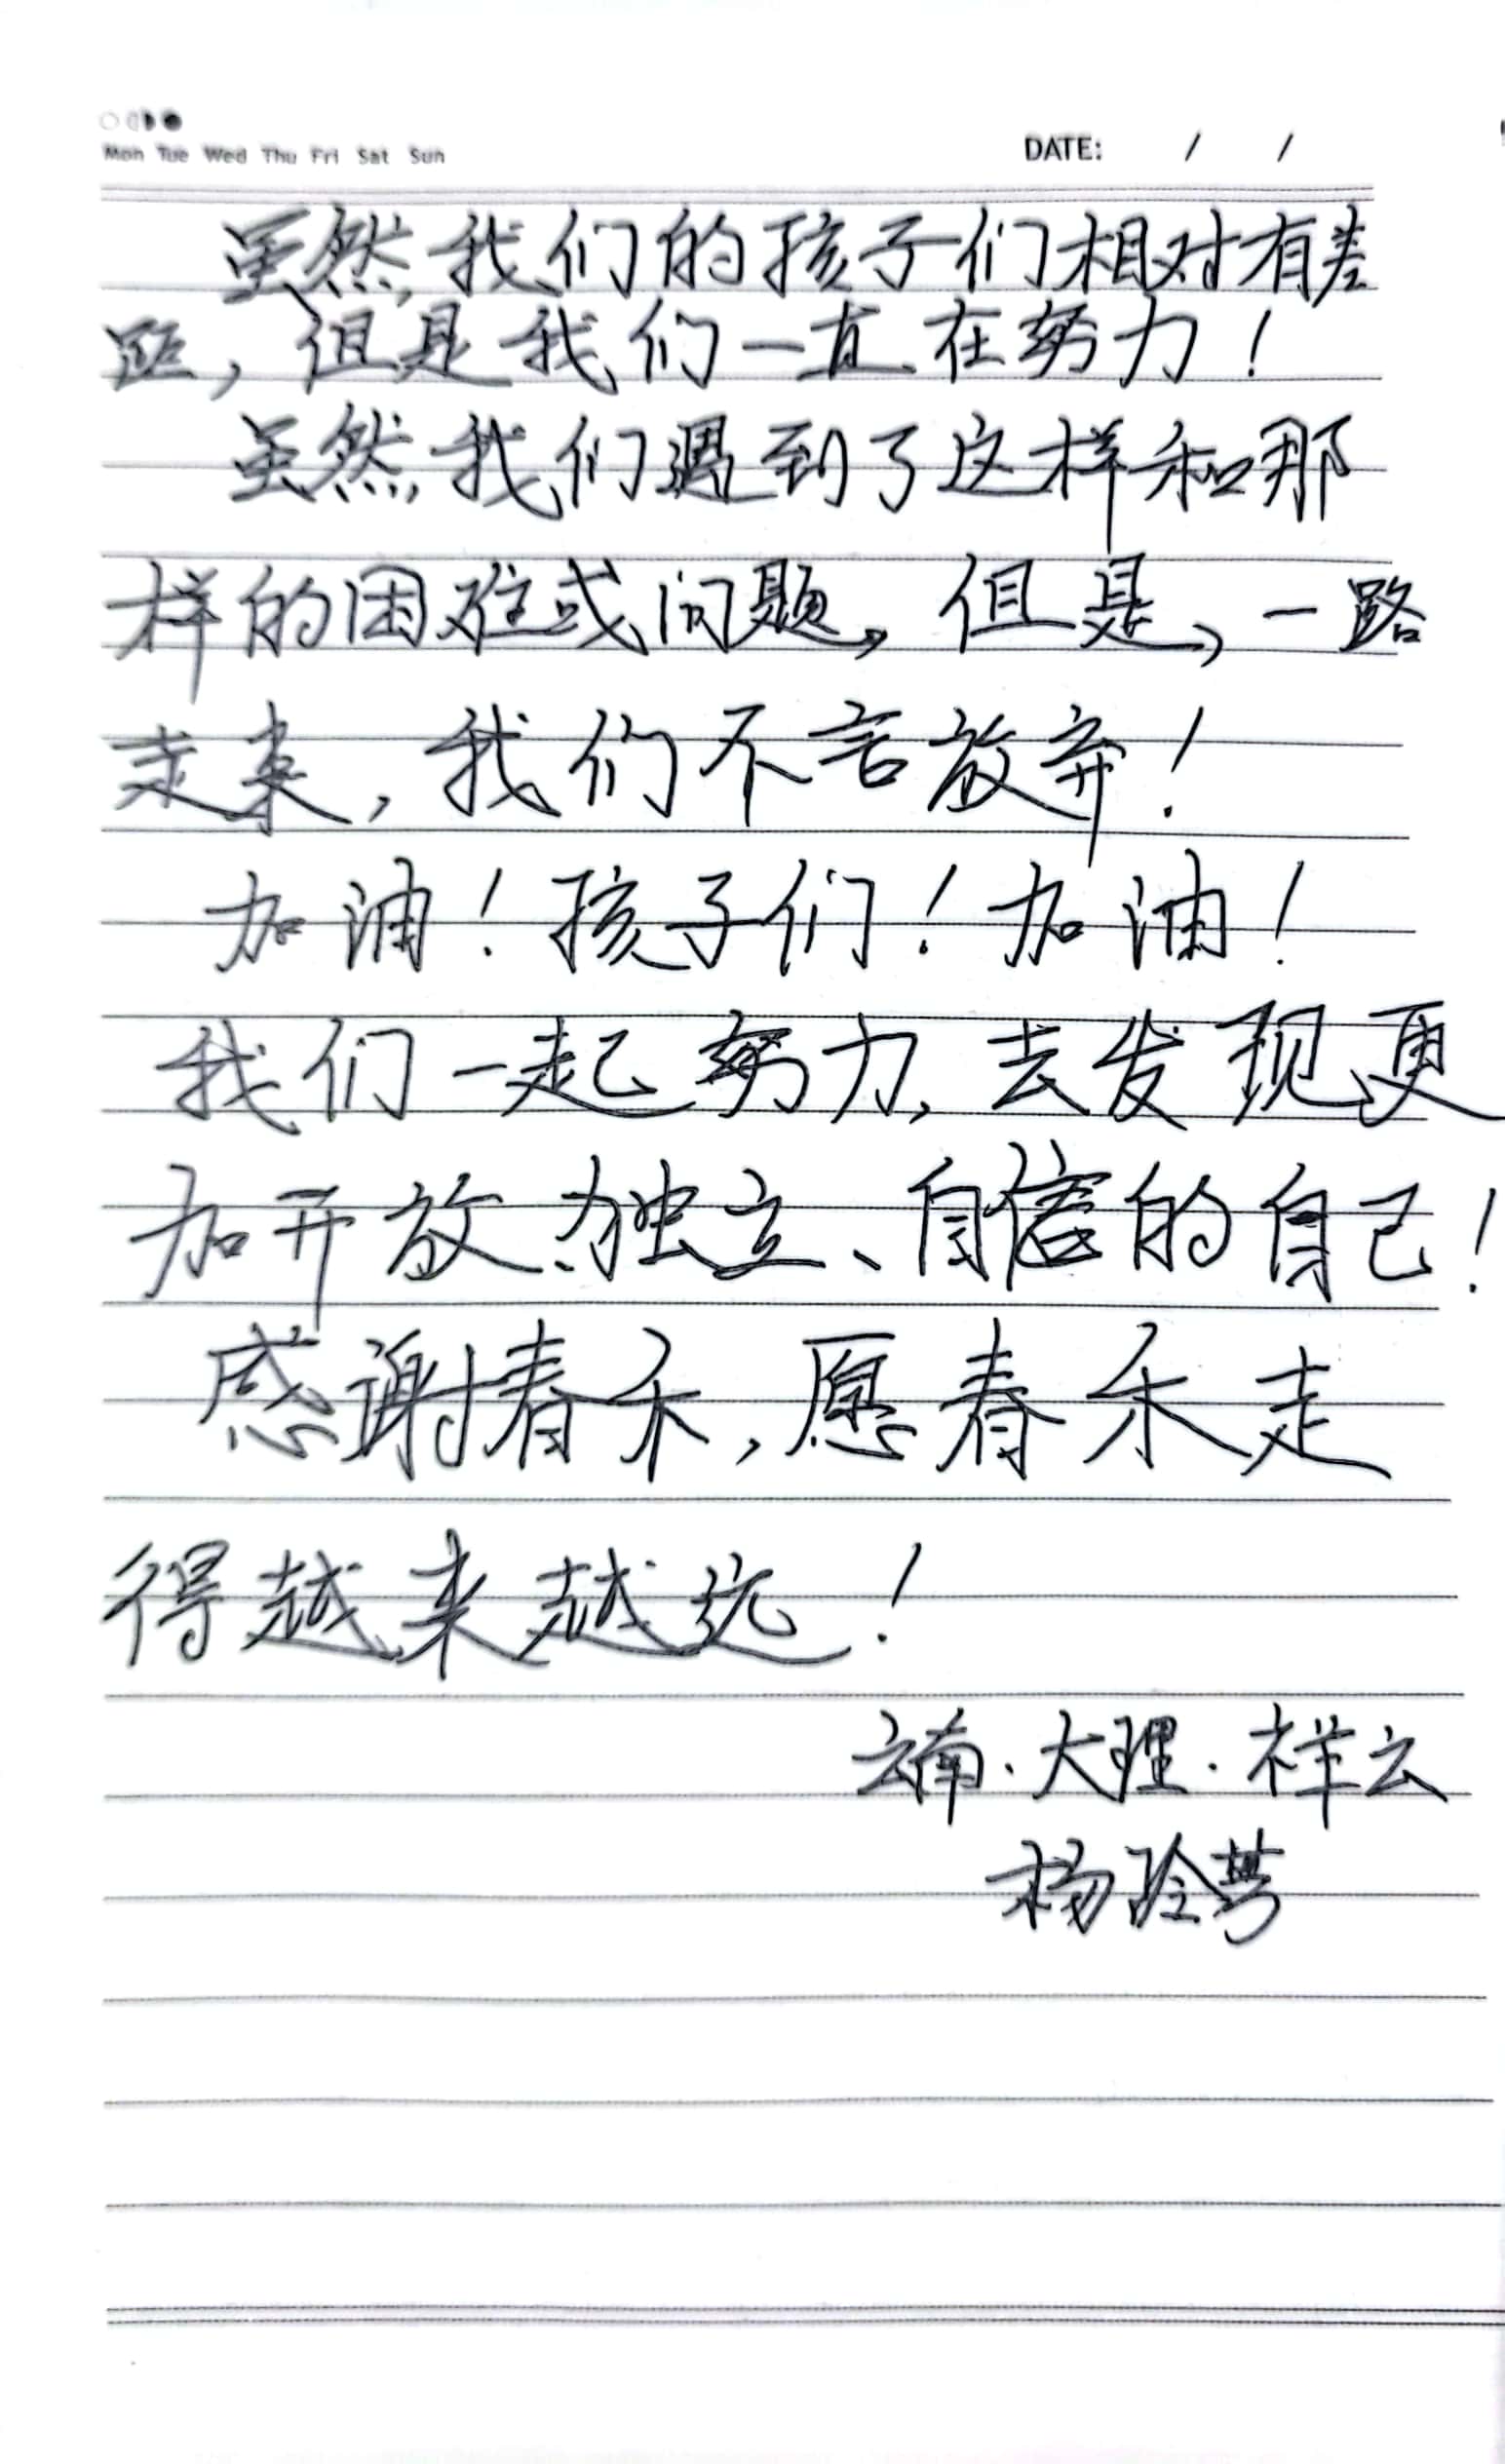 Mon Tue Wed Thu Fri Sat Sun
DATE: / /
虽然,我们的孩子们相对有差
距,但是我们一直在努力!
虽然,我们遇到了这样和那
样的困难或问题,但是,一路
走来,我们不言放弃!
加油!孩子们!加油!
我们一起努力,去发现更
加开放、独立、自信的自己!
感谢春禾,愿春禾走
得越来越远!
云南·大理·祥云
杨玲